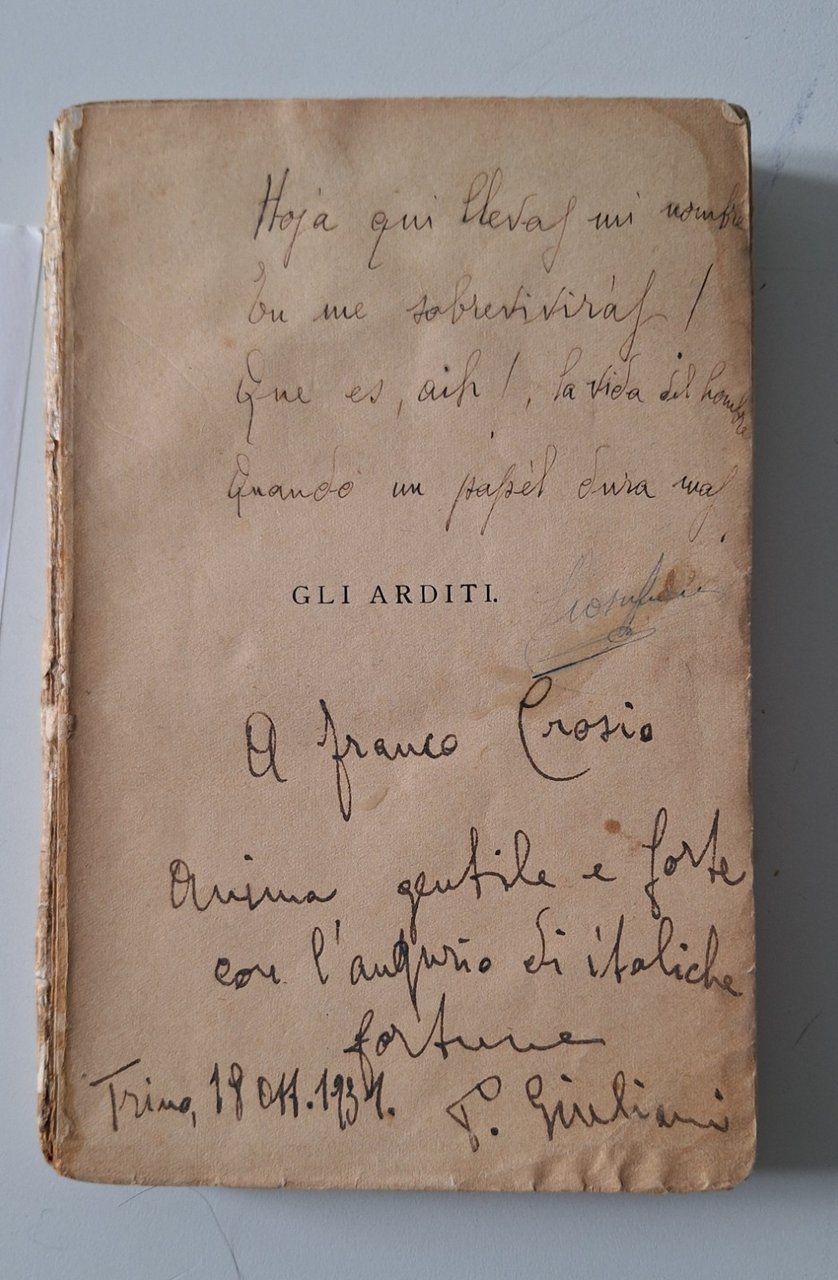 Hoja qui llevas mi nombre
Tu me sobrevivirás!
Que es, aih!, la vida del hombre
Quando un papél dura mas
GLI ARDITI.
A Franco Crosio
Anima gentile e forte
con l'augurio di italiche
fortune
Trino, 18 Ott. 1934. P. Giuliani